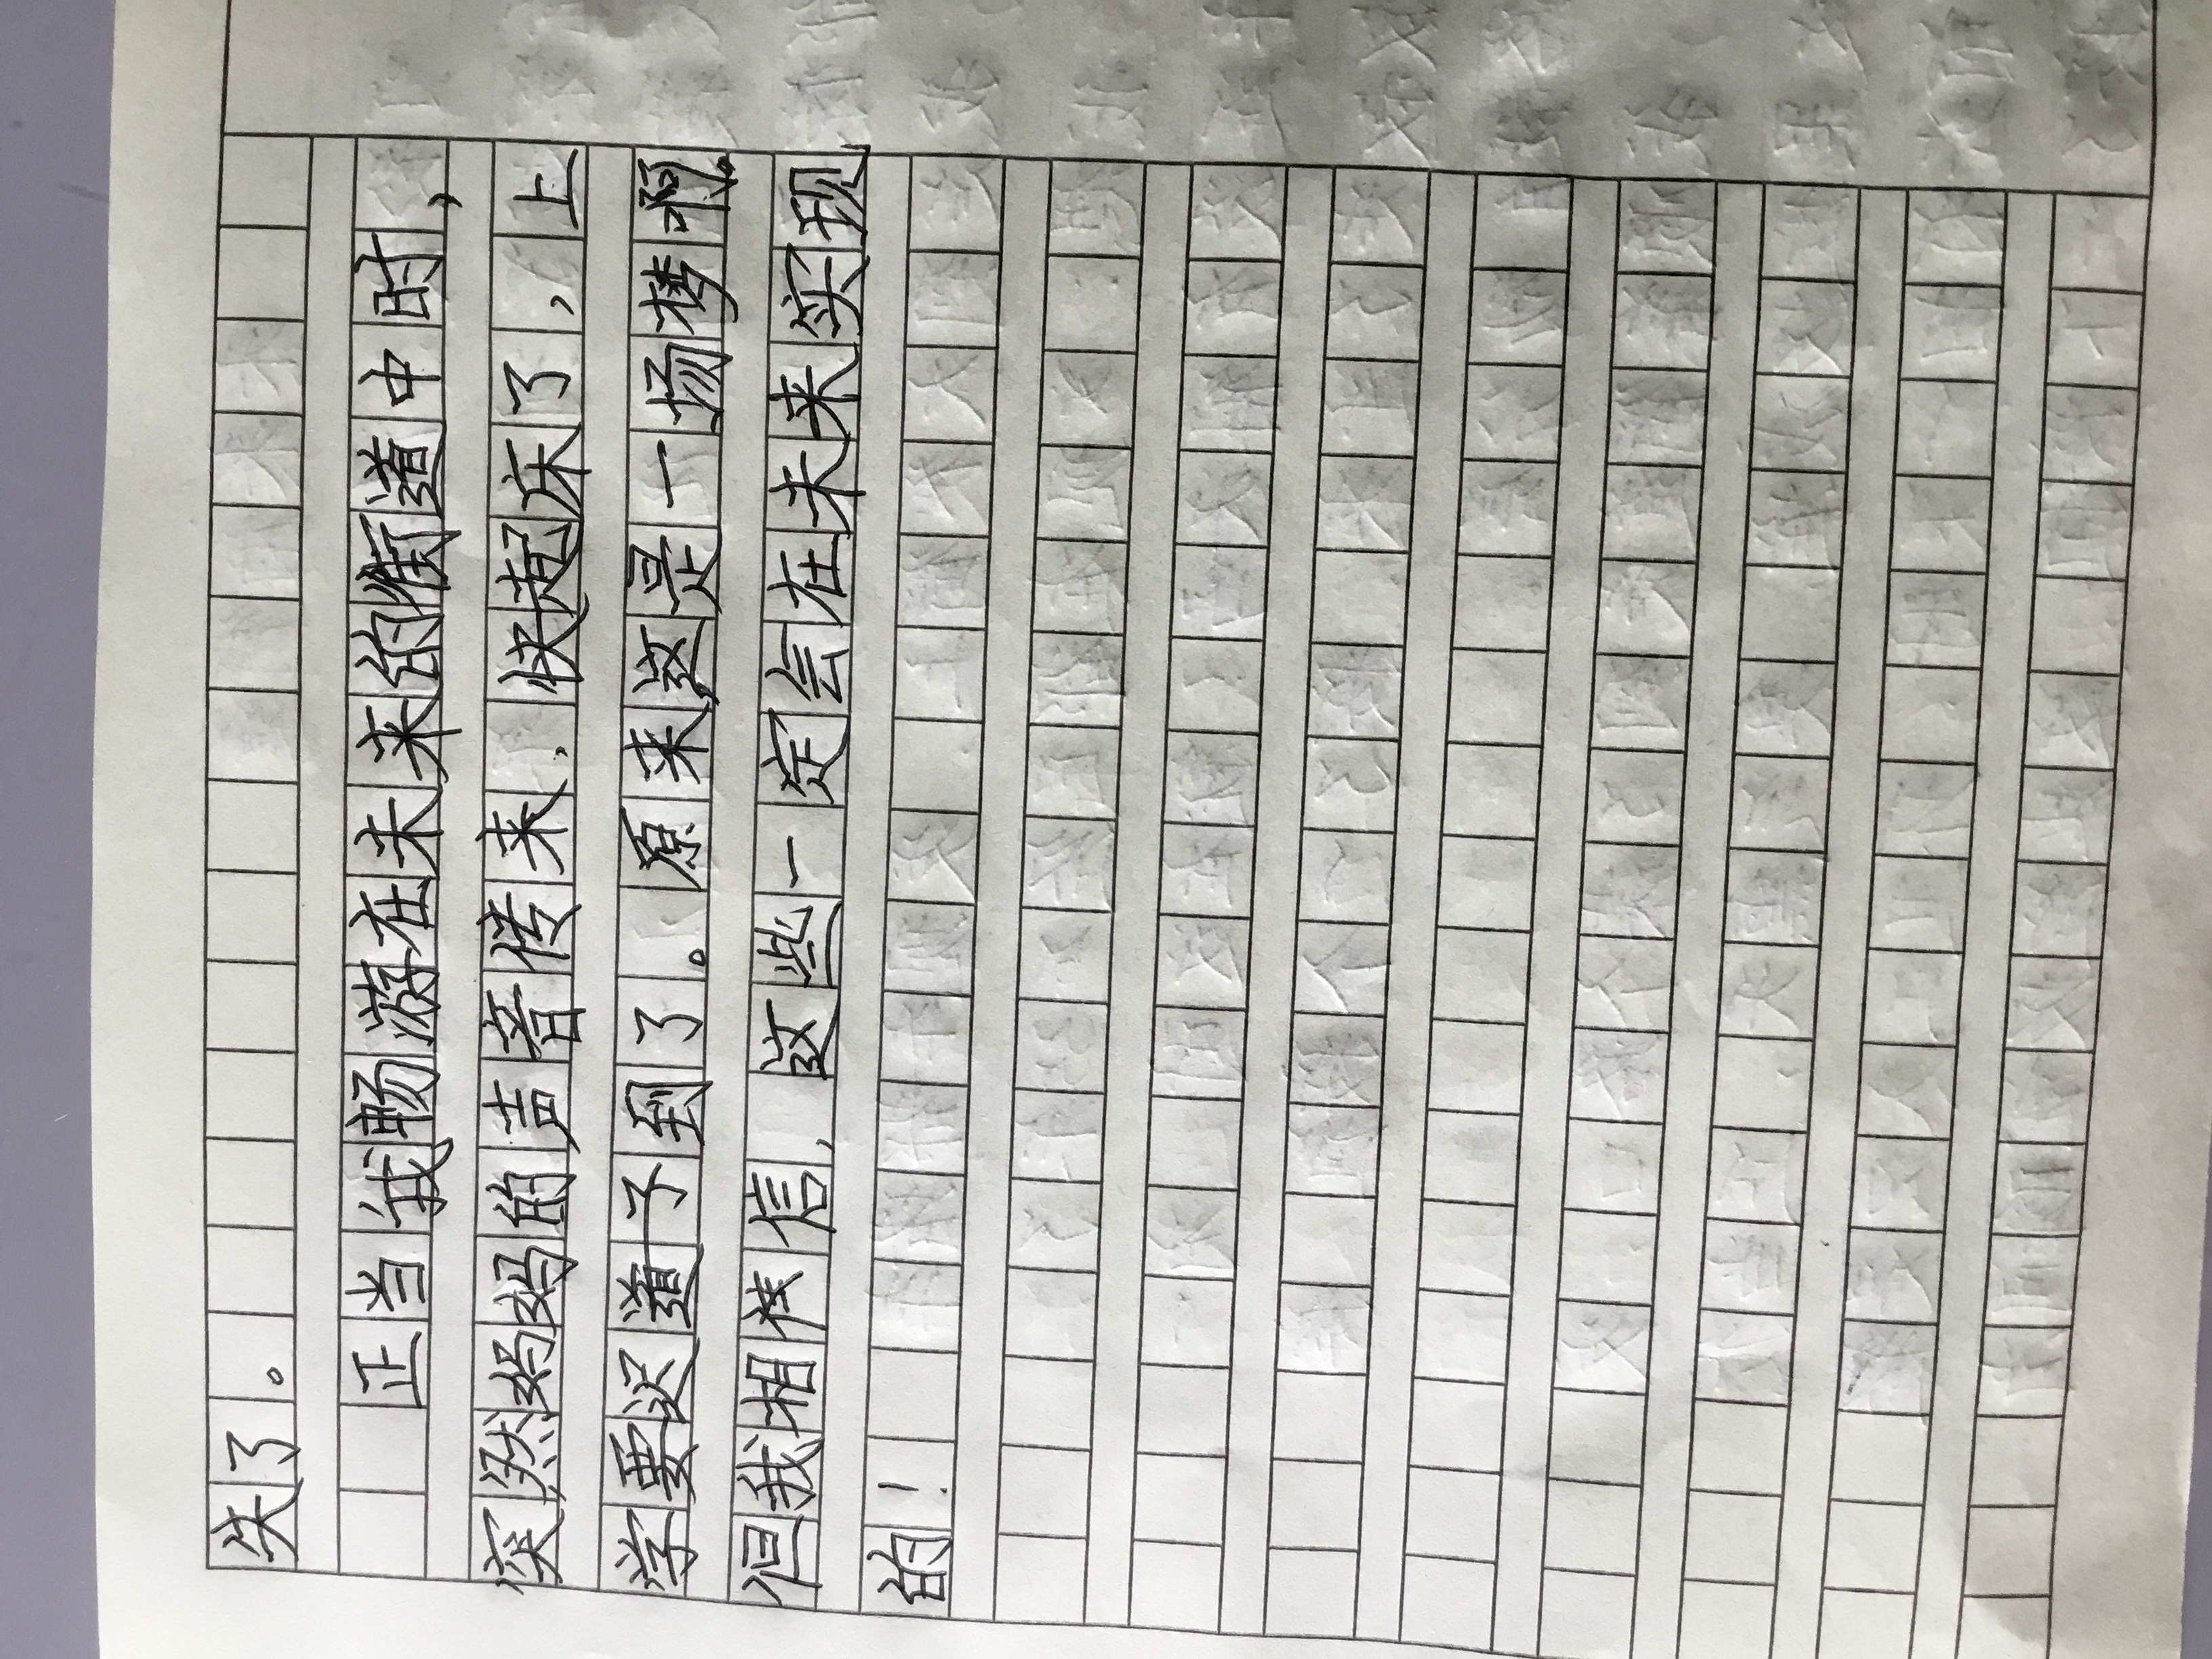 失了。
正当我畅游在未来的街道中时，
突然妈妈的声音传来，快起床了，上
学要迟道子到了。原来这是一场梦啊。
但我相信，这些一定会在未来实现
的！